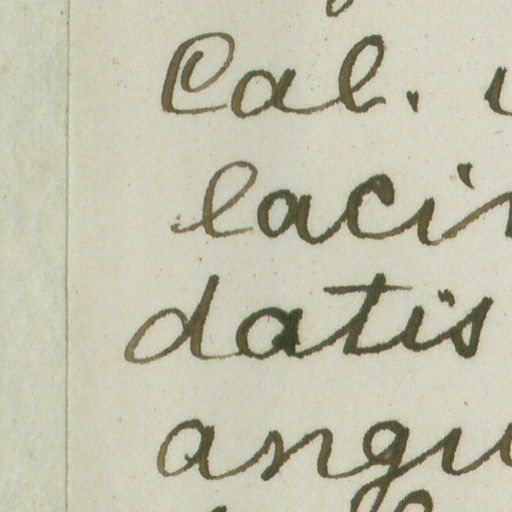 Cal.
lacin
datis
angu